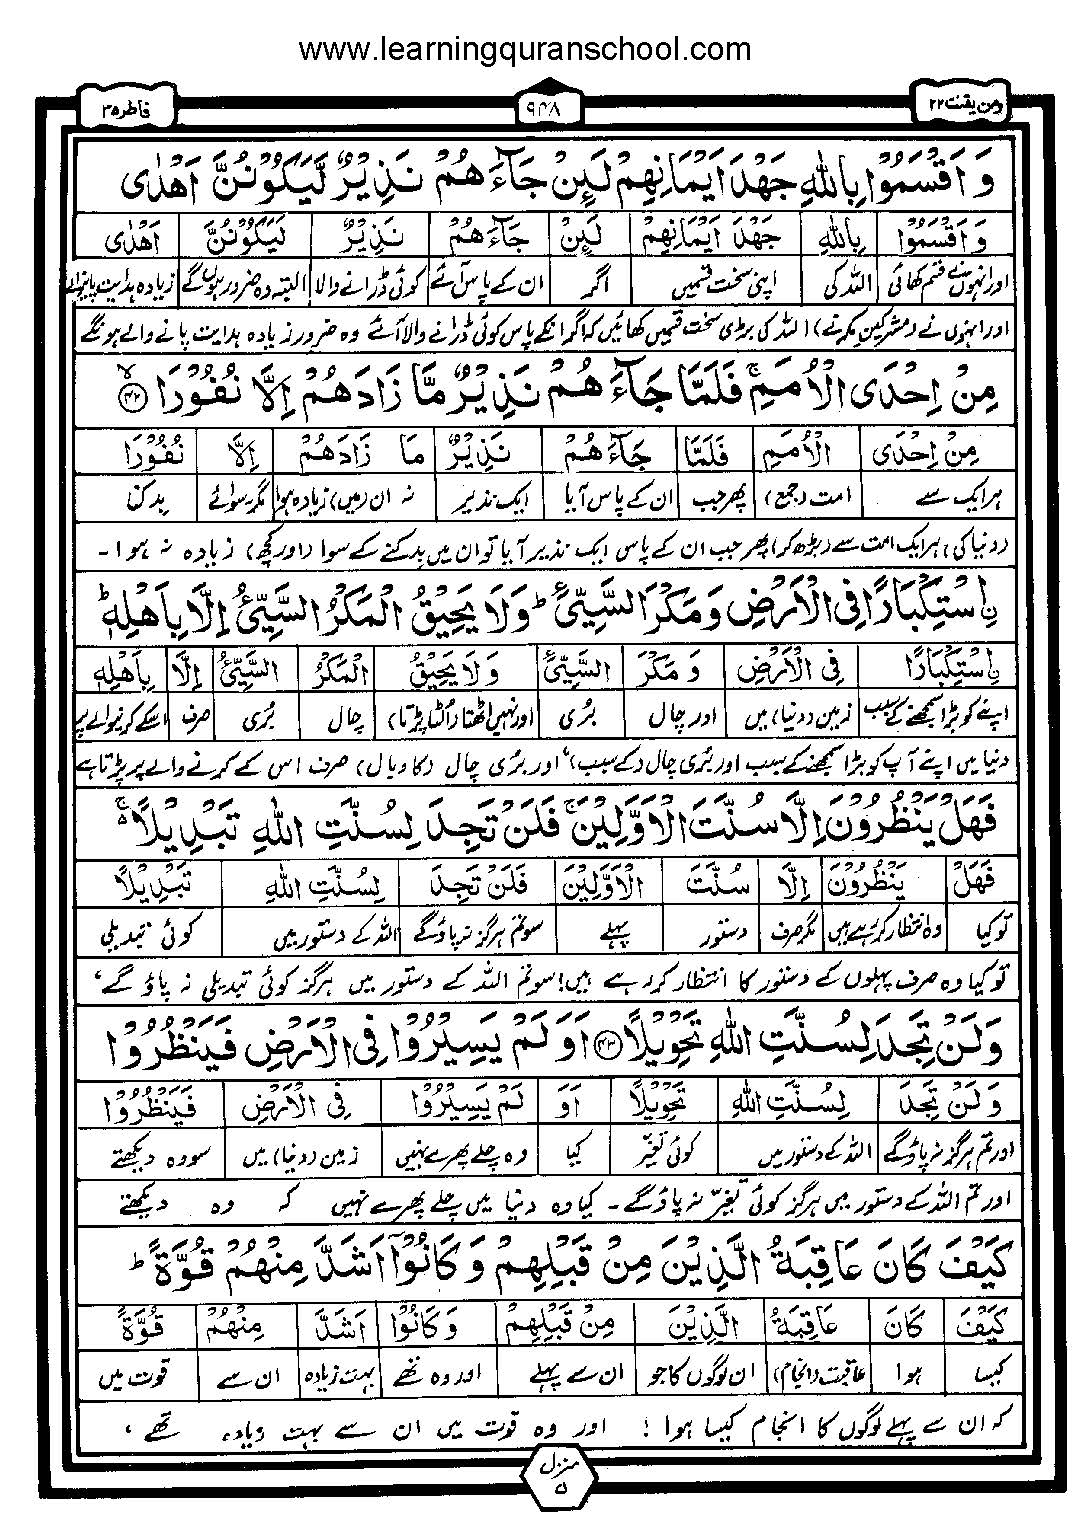 www.learningquranschool.com
ومن یقنت ۲۲
۹۴۸
فاطر ۳۵
وَاَقْسَمُوْا بِاللّٰهِ جَهْدَ اَيْمَانِهِمْ لَئِنْ جَآءَهُمْ نَذِيْرٌ لَّيَكُوْنُنَّ اَهْدٰى
وَاَقْسَمُوْا بِاللّٰهِ جَهْدَ اَيْمَانِهِمْ لَئِنْ جَآءَهُمْ نَذِيْرٌ لَيَكُوْنُنَّ اَهْدٰى
اور انہوں نے قسم کھائی اللہ کی اپنی سخت قسمیں اگر ان کے پاس آئے کوئی ڈرانے والا البتہ وہ ضرور ہوں گے زیادہ ہدایت پانیوالے
اور انہوں نے (مشرکین مکہ نے) اللہ کی بڑی سخت قسمیں کھائیں کہ اگر انکے پاس کوئی ڈرانے والا آئے وہ ضرور زیادہ ہدایت پانے والے ہونگے
مِنْ اِحْدَى الْاُمَمِ ۚ فَلَمَّا جَآءَهُمْ نَذِيْرٌ مَّا زَادَهُمْ اِلَّا نُفُوْرًا ﴿۴۲﴾ۙ
مِنْ اِحْدَى الْاُمَمِ فَلَمَّا جَآءَهُمْ نَذِيْرٌ مَا زَادَهُمْ اِلَّا نُفُوْرًا
ہر ایک سے امت (جمع) پھر جب ان کے پاس آیا ایک نذیر نہ ان (میں) زیادہ ہوا مگر سوائے بدکنا
(دنیا کی) ہر ایک امت سے (بڑھ کر) پھر جب ان کے پاس ایک نذیر آیا تو ان میں بدکنے کے سوا (اور کچھ) زیادہ نہ ہوا۔
اِۨسْتِكْبَارًا فِى الْاَرْضِ وَمَكْرَ السَّيِّئِ ؕ وَلَا يَحِيْقُ الْمَكْرُ السَّيِّئُ اِلَّا بِاَهْلِهٖ ؕ
اِۨسْتِكْبَارًا فِى الْاَرْضِ وَمَكْرَ السَّيِّئِ وَلَا يَحِيْقُ الْمَكْرُ السَّيِّئُ اِلَّا بِاَهْلِهٖ
اپنے کو بڑا سمجھنے کے سبب زمین (دنیا) میں اور چال بُری اور نہیں اٹھتا (الٹا پڑتا) چال بُری صرف اسکے کرنیوالے پر
دنیا میں اپنے آپ کو بڑا سمجھنے کے سبب اور بُری چال (کے سبب)، اور بُری چال (کا وبال) صرف اس کے کرنے والے پر پڑتا ہے
فَهَلْ يَنْظُرُوْنَ اِلَّا سُنَّتَ الْاَوَّلِيْنَ ۚ فَلَنْ تَجِدَ لِسُنَّتِ اللّٰهِ تَبْدِيْلًا ۚ۬
فَهَلْ يَنْظُرُوْنَ اِلَّا سُنَّتَ الْاَوَّلِيْنَ فَلَنْ تَجِدَ لِسُنَّتِ اللّٰهِ تَبْدِيْلًا
تو کیا وہ انتظار کر رہے ہیں مگر صرف دستور پہلے سو تم ہرگز نہ پاؤ گے اللہ کے دستور میں کوئی تبدیلی
تو کیا وہ صرف پہلوں کے دستور کا انتظار کر رہے ہیں! سو تم اللہ کے دستور میں ہرگز کوئی تبدیلی نہ پاؤ گے،
وَلَنْ تَجِدَ لِسُنَّتِ اللّٰهِ تَحْوِيْلًا ﴿۴۳﴾ اَوَلَمْ يَسِيْرُوْا فِى الْاَرْضِ فَيَنْظُرُوْا
وَلَنْ تَجِدَ لِسُنَّتِ اللّٰهِ تَحْوِيْلًا اَوَ لَمْ يَسِيْرُوْا فِى الْاَرْضِ فَيَنْظُرُوْا
اور تم ہرگز نہ پاؤ گے اللہ کے دستور میں کوئی تغیّر کیا وہ چلے پھرے نہیں زمین (دنیا) میں سو وہ دیکھتے
اور تم اللہ کے دستور میں ہرگز کوئی تغیّر نہ پاؤ گے۔ کیا وہ دنیا میں چلے پھرے نہیں کہ وہ دیکھتے
كَيْفَ كَانَ عَاقِبَةُ الَّذِيْنَ مِنْ قَبْلِهِمْ وَكَانُوْٓا اَشَدَّ مِنْهُمْ قُوَّةً ؕ
كَيْفَ كَانَ عَاقِبَةُ الَّذِيْنَ مِنْ قَبْلِهِمْ وَكَانُوْٓا اَشَدَّ مِنْهُمْ قُوَّةً
کیسا ہوا عاقبت (انجام) ان لوگوں کا جو ان سے پہلے اور وہ تھے بہت زیادہ ان سے قوت میں
کہ ان سے پہلے لوگوں کا انجام کیسا ہوا! اور وہ قوت میں ان سے بہت زیادہ تھے،
منزل ۵